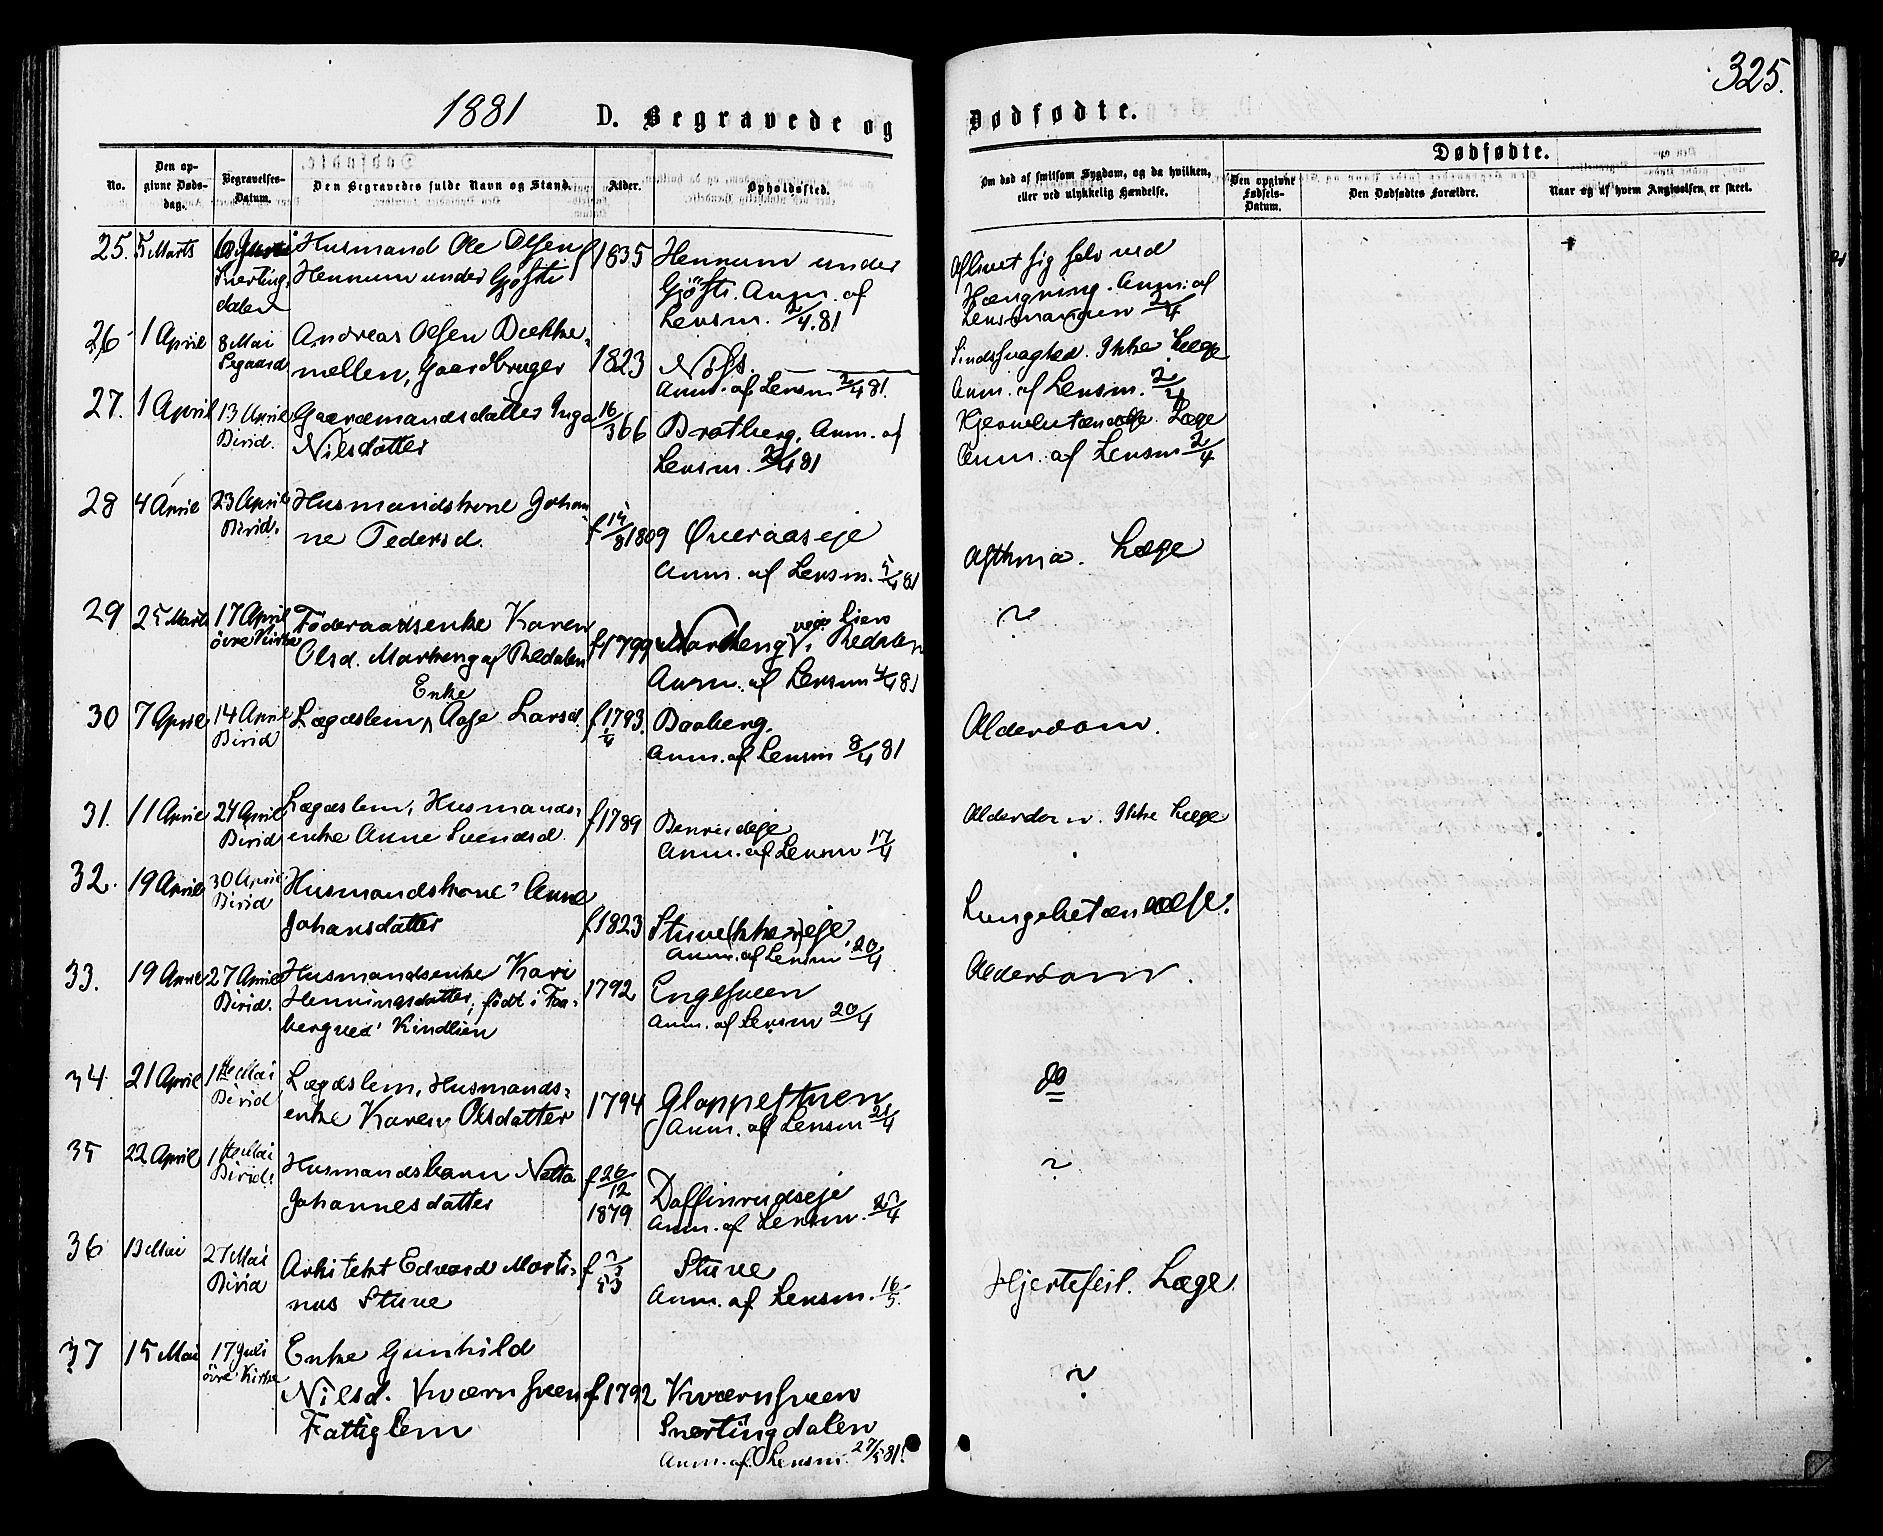 325.
1881 D. Begravede og Dødfødte.
No.
Den opgivne Døds-dag.
Begravelses-Datum.
Den Begravedes fulde Navn og Stand.
Alder.
Opholdssted.
Om død af smitsom Sygdom, og da hvilken, eller ved ulykkelig Hændelse.
Dødfødte.
Den opgivne Fødsels-Datum.
Den Dødfødtes Forældre.
Naar og af hvem Angivelsen er skeet.
25. 5 Marts
Snerting-
dalen
Husmand Ole Olsen
Hennum under Gjøsti
f 1835
Hennum under
Gjøsti. Anm. af
Lensm. 2/4.81
Aflivet sig selv ved
Hængning. Anm: af
Lensmanden 2/4
26 1 April
8 Mai
Segaard
Andreas Olsen Bække-
mellem, Gaardbruger
1823
Nøss.
Anm. af Lensm 2/4 81.
Sindssvaghed. Ikke Læge
Anm. af Lensm. 2/4
27. 1 April
13 April
Birid.
Gaardmandsdatter Inga
Nilsdatter
16/3 66
Bratberg, Anm. af
Lensm. 2/4 81
Hjernebetændelse. Læge
Anm. af Lensm 2/4
28 4 April
23 April
Birid.
Husmandskone Johan-
ne Pedersd.
f 14/8 1809
Øveraaseje
Anm. af Lensm. 5/4 81
Asthma. Læge
29 25 Marts
17 April
øvre Kirke
Føderaadsenke Karen
Olsd. Markeng af Redalen
f 1799
Markeng i Redalen
Anm. af Lensm 4/4 81
?
30 7 April
14 April
Birid
Enke
Lægdslem Aase Larsd.
f 1793.
Baaberg.
Anm. af Lensm 8/4 81
Alderdom.
31. 11 April
24 April
Birid
Lægdslem, Husmands-
enke Anne Svendsd.
f 1789
Anm. af Lensm 17/4
Alderdom. Ikke Læge
32. 19 April
30 April
Birid
Husmandskone Anne
Johansdatter
f 1823
Anm. af Lensm 20/4
Lungebetændelse.
33. 19 April
27 April
Birid.
Husmandsenke Kari
Henningsdatter, født i Faa-
berg ved Kindlien
1792
Engesveen
Anm. af Lensm 20/4
Alderdom.
34. 21 April
1ste Mai
Birid
Lægdslem, Husmands-
enke Karen Olsdatter
1794
Gloppestuen
Anm. af Lensm 21/4
do
35 22 April
1ste Mai
Birid.
Husmandsbarn Netta
Johannesdatter
f 26/12
1879
Daffinrudseje
Anm. af Lensm.
?
36 13 Mai
27 Mai
Birid
Arkitekt Edvard Marti-
nus Stuve
Stuve
Anm. af Lensm. 16/5.
Hjertefeil. Læge.
37 15 Mai
17 Juli
øvre Kirke
Enke Gunhild
Nilsd. Kværnsveen
Fattiglem
f 1792
Kværnsveen
Snertingdalen
Anm. af Lensm. 27/5 81.
?